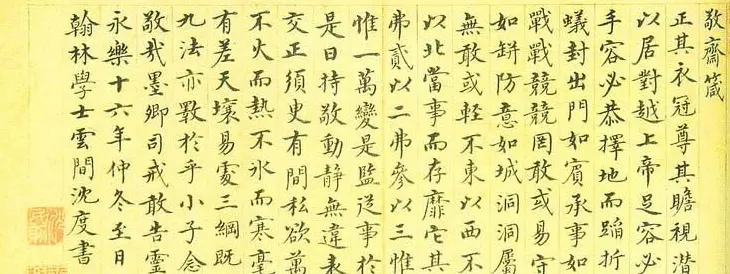 敬齋箴
正其衣冠尊其瞻視潛
以居對越上帝足容必
手容必恭擇地而蹈折
蟻封出門如賓承事如
戰戰兢兢罔敢或易守
如缾防意如城洞洞屬
無敢或輕不東以西不
以北當事而存靡它其
弗貳以二弗參以三惟
惟一萬變是監從事於
是曰持敬動靜無違表
交正須臾有間私欲萬
不火而熱不氷而寒毫
有差天壤易處三綱既
九法亦斁於乎小子念
敬哉墨卿司戒敢告靈
永樂十六年仲冬至日
翰林學士雲間沈度書